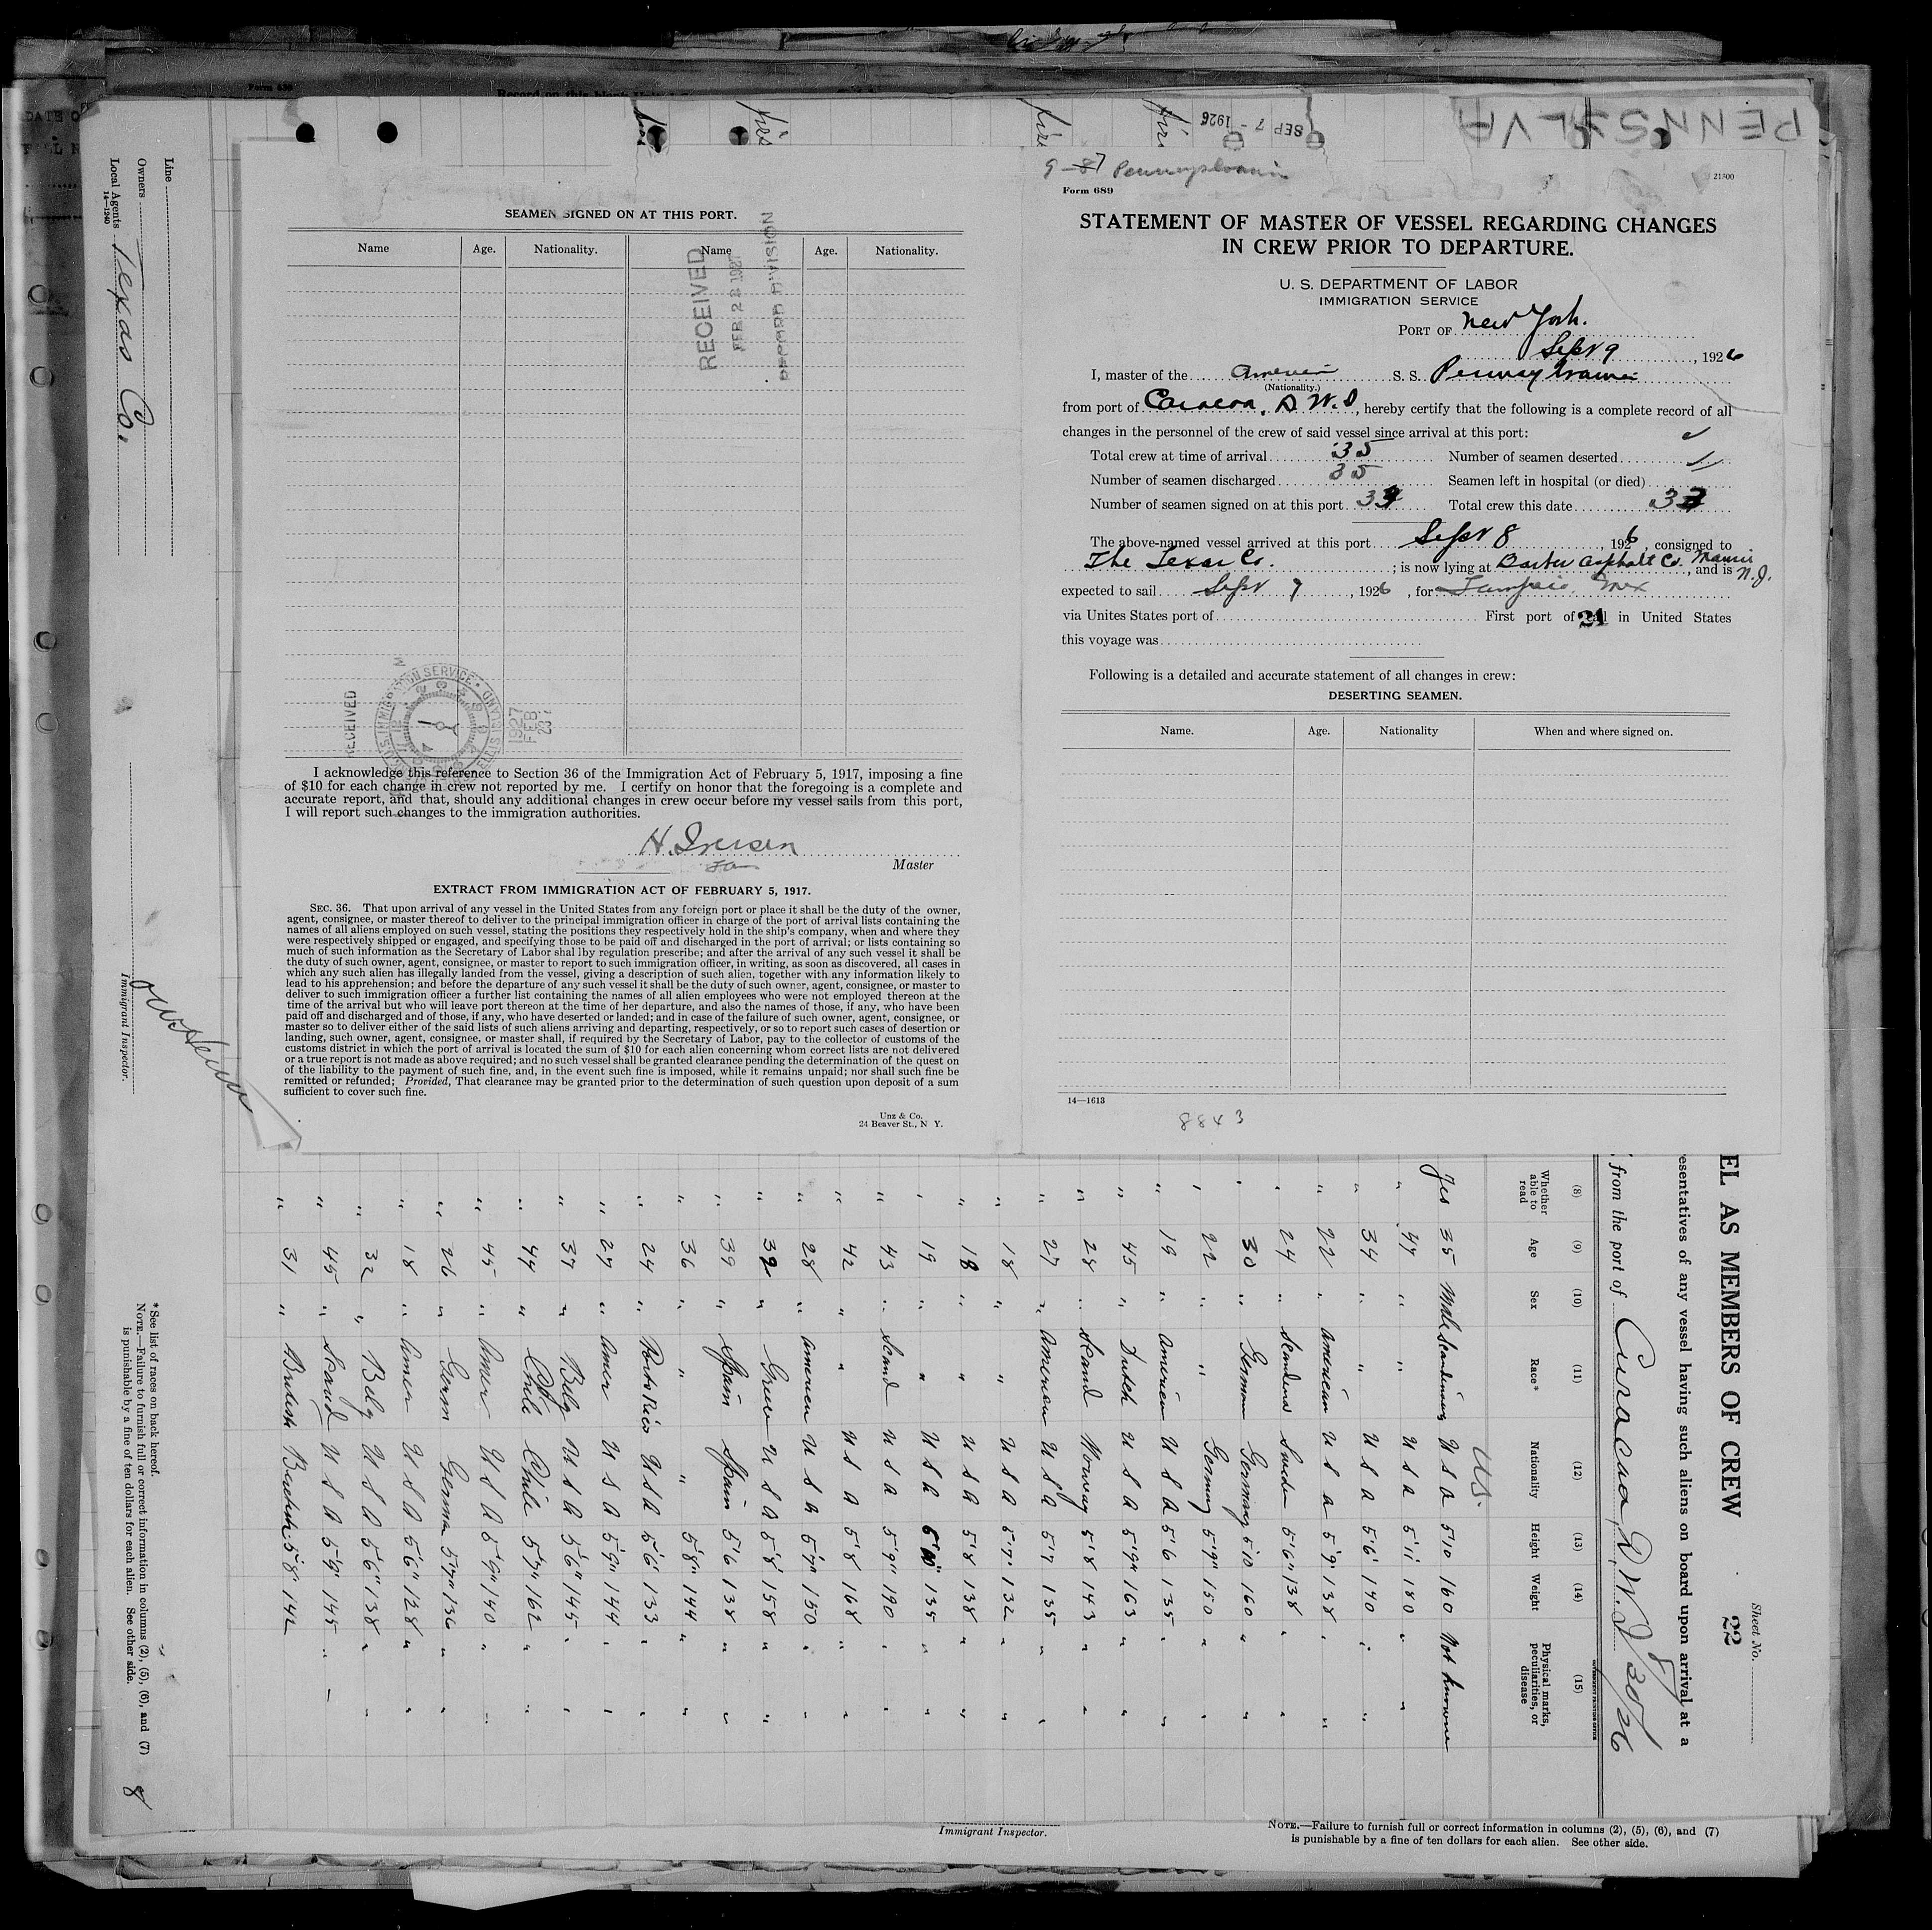 PENNSYLVA
SEP 7 - 1926
SEAMEN SIGNED ON AT THIS PORT.
Name Age. Nationality. Name Age. Nationality.
RECEIVED
FEB 23 1927
RECORD DIVISION
RECEIVED
1927
FEB
23
I acknowledge this reference to Section 36 of the Immigration Act of February 5, 1917, imposing a fine
of $10 for each change in crew not reported by me. I certify on honor that the foregoing is a complete and
accurate report, and that, should any additional changes in crew occur before my vessel sails from this port,
I will report such changes to the immigration authorities.
H. Iversen
Master
EXTRACT FROM IMMIGRATION ACT OF FEBRUARY 5, 1917.
SEC. 36. That upon arrival of any vessel in the United States from any foreign port or place it shall be the duty of the owner,
agent, consignee, or master thereof to deliver to the principal immigration officer in charge of the port of arrival lists containing the
names of all aliens employed on such vessel, stating the positions they respectively hold in the ship's company, when and where they
were respectively shipped or engaged, and specifying those to be paid off and discharged in the port of arrival; or lists containing so
much of such information as the Secretary of Labor shal lby regulation prescribe; and after the arrival of any such vessel it shall be
the duty of such owner, agent, consignee, or master to report to such immigration officer, in writing, as soon as discovered, all cases in
which any such alien has illegally landed from the vessel, giving a description of such alien, together with any information likely to
lead to his apprehension; and before the departure of any such vessel it shall be the duty of such owner, agent, consignee, or master to
deliver to such immigration officer a further list containing the names of all alien employees who were not employed thereon at the
time of the arrival but who will leave port thereon at the time of her departure, and also the names of those, if any, who have been
paid off and discharged and of those, if any, who have deserted or landed; and in case of the failure of such owner, agent, consignee, or
master so to deliver either of the said lists of such aliens arriving and departing, respectively, or so to report such cases of desertion or
landing, such owner, agent, consignee, or master shall, if required by the Secretary of Labor, pay to the collector of customs of the
customs district in which the port of arrival is located the sum of $10 for each alien concerning whom correct lists are not delivered
or a true report is not made as above required; and no such vessel shall be granted clearance pending the determination of the quest on
of the liability to the payment of such fine, and, in the event such fine is imposed, while it remains unpaid; nor shall such fine be
remitted or refunded; Provided, That clearance may be granted prior to the determination of such question upon deposit of a sum
sufficient to cover such fine.
Unz & Co.
24 Beaver St., N Y.
9-87 Pennsylvania
21500
Form 689
STATEMENT OF MASTER OF VESSEL REGARDING CHANGES
IN CREW PRIOR TO DEPARTURE.
U. S. DEPARTMENT OF LABOR
IMMIGRATION SERVICE
PORT OF New York.
Sept 9, 1926
I, master of the American S. S. Pennsylvania
(Nationality.)
from port of Curacoa, D W. I, hereby certify that the following is a complete record of all
changes in the personnel of the crew of said vessel since arrival at this port:
Total crew at time of arrival 35 Number of seamen deserted
Number of seamen discharged 35 Seamen left in hospital (or died)
Number of seamen signed on at this port Total crew this date
The above-named vessel arrived at this port Sept 8, 1926, consigned to
The Texas Co.; is now lying at Barber Asphalt Co. Maurer N.J., and is
expected to sail Sept 7, 1926, for Tampico, Mex
via Unites States port of First port of call in United States
21
this voyage was
Following is a detailed and accurate statement of all changes in crew:
DESERTING SEAMEN.
Name. Age. Nationality When and where signed on.
14—1613
8843
Line
Owners
Local Agents Texas Co.
14—1240
Immigrant Inspector.
EL AS MEMBERS OF CREW
Sheet No.
22
esentatives of any vessel having such aliens on board upon arrival at a
from the port of Curacao, D. W. I 8/30/26
(8) (9) (10) (11) (12) (13) (14) (15)
Whether able to read Age Sex Race* Nationality Height Weight Physical marks, peculiarities, or disease
U.S.
Yes 35 Male Scandinavian U S A 5'10 160 Not known
" 47 " " U S A 5'11 180 "
" 34 " " U S A 5'6" 140 "
" 22 " American U S A 5'9" 138 "
" 24 " Scandinav Sweden 5'6" 138 "
" 30 " German Germany 5'10 160 "
" 22 " " Germany 5'9" 150 "
" 19 " American U S A 5'6 135 "
" 45 " Dutch U S A 5'9" 163 "
" 28 " Scand Norway 5'8 143 "
" 27 " American U S A 5'7 135 "
" 18 " " U S A 5'7" 132 "
" 18 " " U S A 5'8 138 "
" 19 " " U S A 135 "
" 43 " Scand U S A 5'9" 190 "
" 42 " " U S A 5'8 168 "
" 28 " American U S A 5'7" 150 "
" 32 " Greece U S A 5'8" 158 "
" 39 " Spain Spain 5'6 138 "
" 36 " " " 5'8" 144 "
" 24 " Porto Rico U S A 5'6" 133 "
" 27 " Amer U S A 5'9" 144 "
" 37 " Belg U S A 5'6" 145 "
" 44 " Chile Chile 5'7" 162 "
" 45 " Amer U S A 5'9" 140 "
" 26 " Germ Germa 5'7" 136 "
" 18 " Amer U S A 5'6" 128 "
" 32 " Belg U S A 5'6" 138 "
" 45 " Scand U S A 5'9" 145 "
" 31 " British British 5'8" 142
*See list of races on back hereof.
NOTE.—Failure to furnish full or correct information in columns (2), (5), (6), and (7)
is punishable by a fine of ten dollars for each alien. See other side.
8
Immigrant Inspector.
NOTE.—Failure to furnish full or correct information in columns (2), (5), (6), and (7)
is punishable by a fine of ten dollars for each alien. See other side.